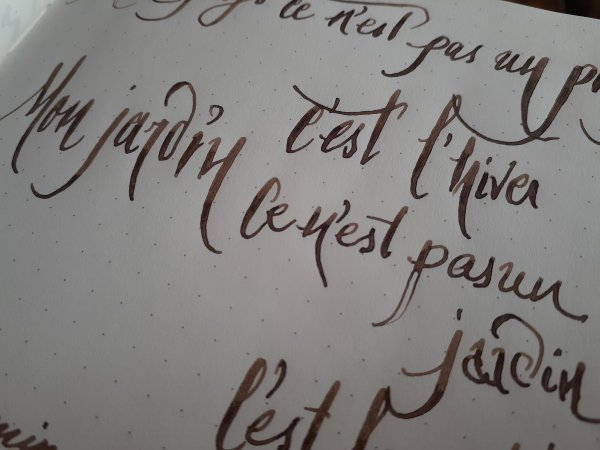 ce n'est pas un
Mon jardin c'est l'hiver
Ce n'est pas un
jardin
c'est